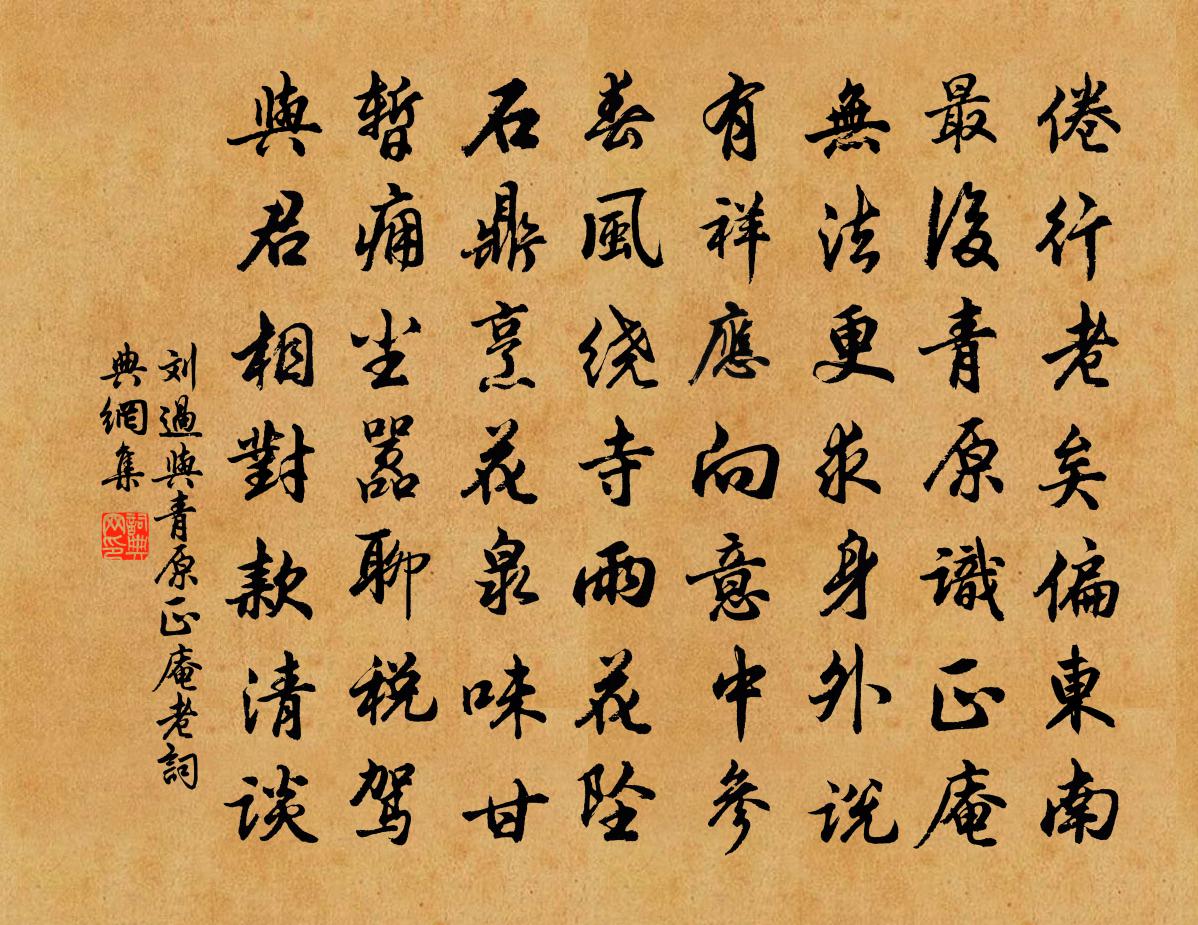 倦行老矣偏東南
最後青原識正庵
無法更求身外説
有祥應向意中參
春風绕寺雨花墜
石鼎烹花泉味甘
暫痛尘囂聊税驾
與君相對款清談
刘過與青原正庵老詞
典網集
詞典
网印